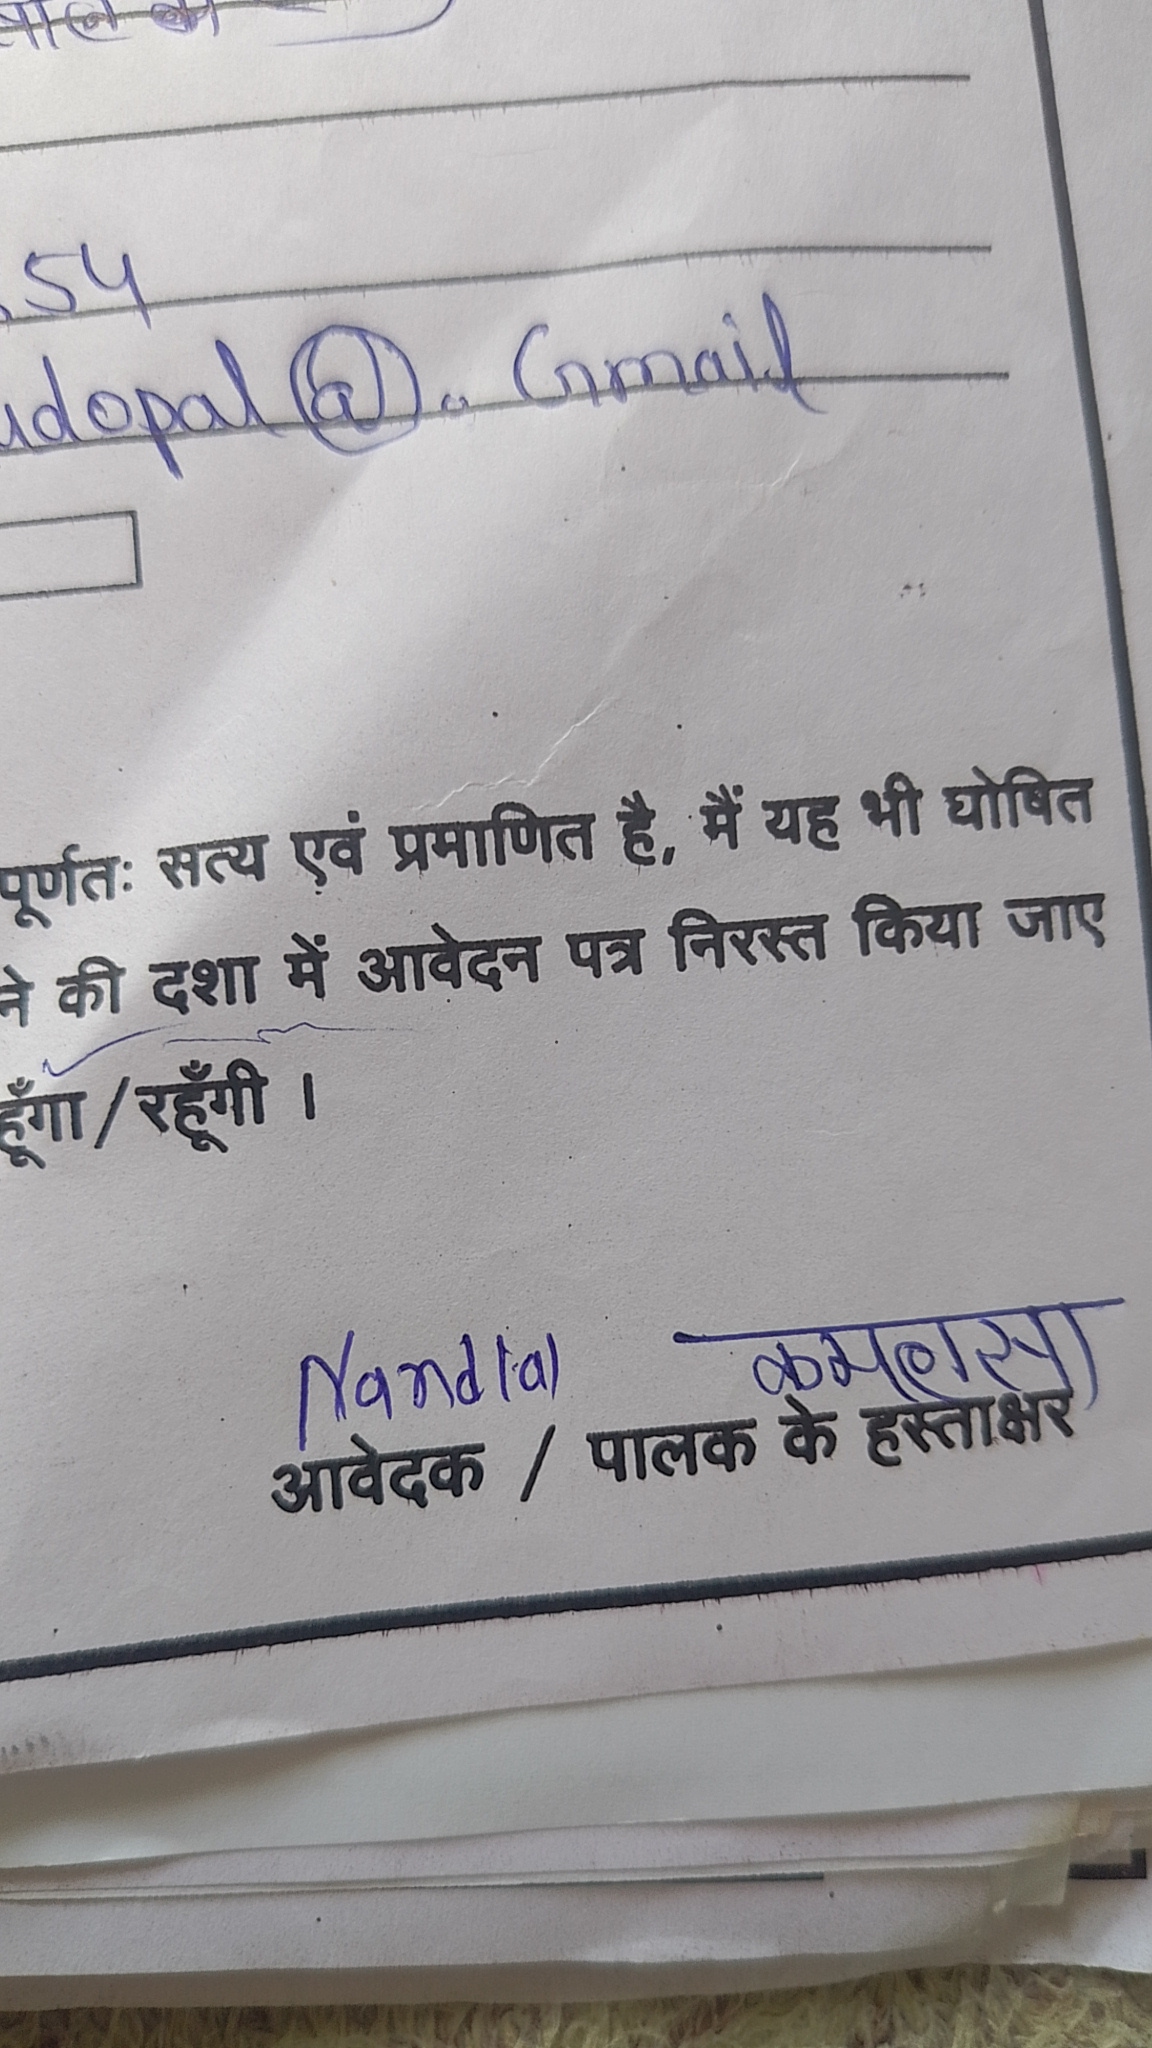 54
udopal@. Gmail
पूर्णतः सत्य एवं प्रमाणित है, मैं यह भी घोषित
ने की दशा में आवेदन पत्र निरस्त किया जाए
हूँगा/रहूँगी ।
Nandlal
आवेदक / पालक के हस्ताक्षर